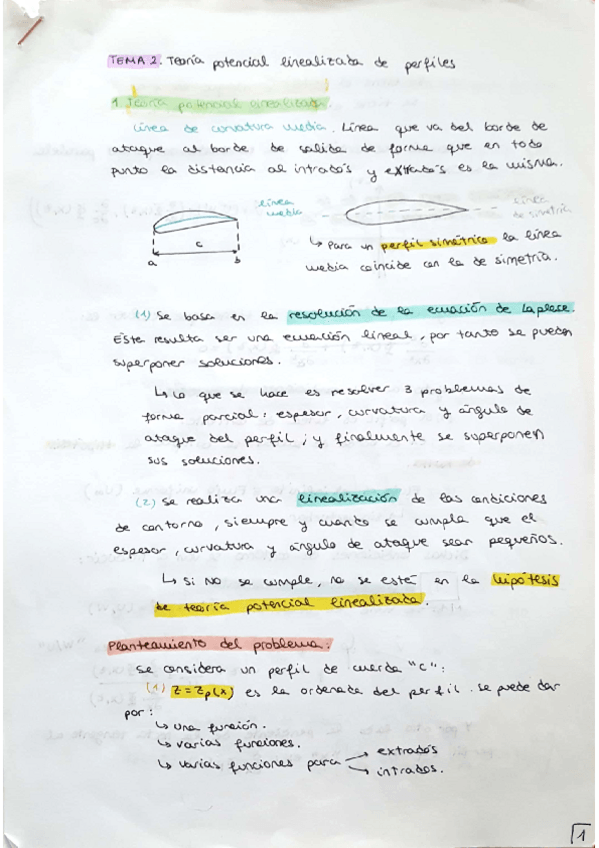 TEMA 2. Teoría potencial linealizada de perfiles
1. Teoría potencial linealizada.
Línea de curvatura media. Línea que va del borde de
ataque al borde de salida de forma que en todo
punto la distancia al intradós y extradós es la misma.
línea
media
línea
de simetría
c
a
b
↳ Para un perfil simétrico la línea
media coincide con la de simetría.
(1) Se basa en la resolución de la ecuación de Laplace.
Esta resulta ser una ecuación lineal, por tanto se pueden
superponer soluciones.
↳ Lo que se hace es resolver 3 problemas de
forma parcial: espesor, curvatura y ángulo de
ataque del perfil; y finalmente se superponen
sus soluciones.
(2) Se realiza una linealización de las condiciones
de contorno, siempre y cuando se cumpla que el
espesor, curvatura y ángulo de ataque sean pequeños.
↳ Si no se cumple, no se está en la hipótesis
de teoría potencial linealizada.
Planteamiento del problema:
Se considera un perfil de cuerda "c":
(1) z = zp(x) es la ordenada del perfil. Se puede dar
por:
↳ una función.
↳ varias funciones.
↳ varias funciones para → extradós
→ intradós.
1